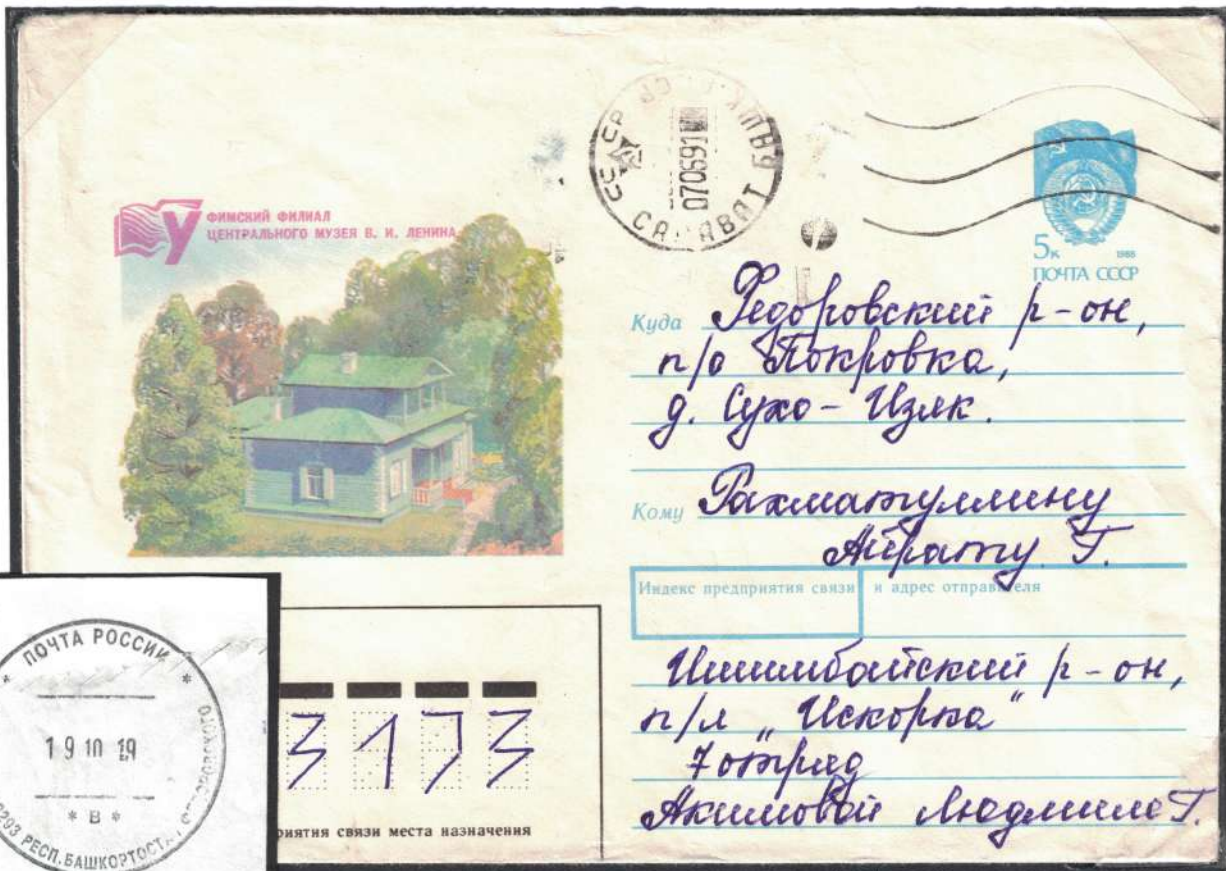 УФИМСКИЙ ФИЛИАЛ
ЦЕНТРАЛЬНОГО МУЗЕЯ В. И. ЛЕНИНА
СССР
САЛАВАТ БАШК.
070691
5к 1988
ПОЧТА СССР
Куда Федоровский р-он,
п/о Покровка,
д. Сухо-Изяк.
Кому Рахматуллину
Айрату Г.
Индекс предприятия связи и адрес отправителя
Ишимбайский р-он,
п/л „Искорка"
7 отряд
Акимовой Людмиле Г.
3173
приятия связи места назначения
ПОЧТА РОССИИ
19 10 19
* В *
293 РЕСП. БАШКОРТОСТ